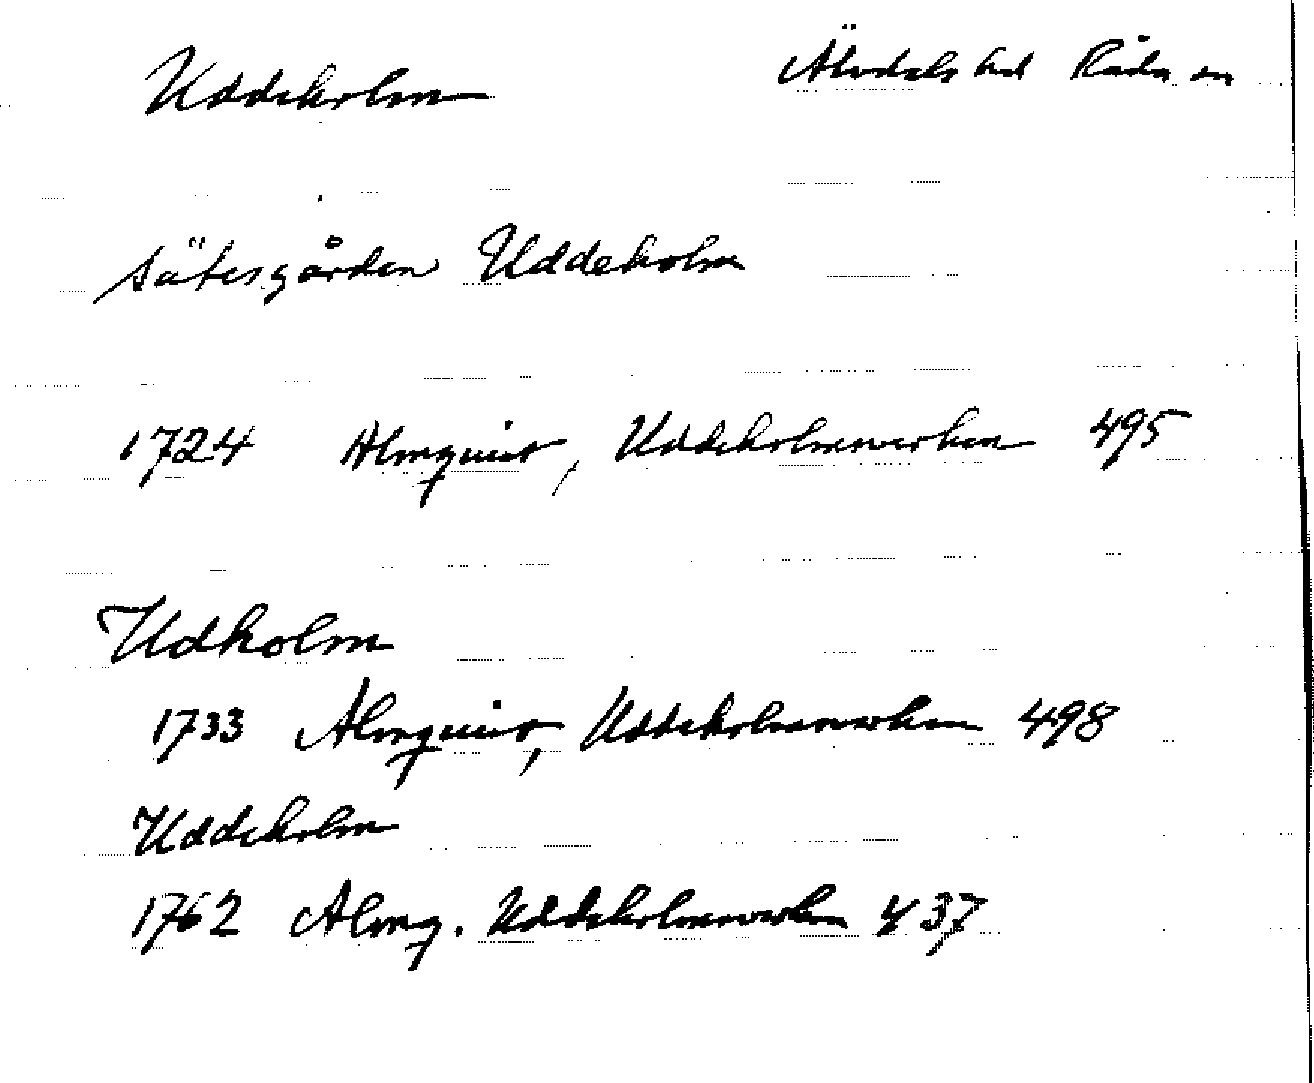 Uddeholm Älvdals hd Råda sn
sätesgården Uddeholm
1724 Almquist, Uddeholmsverken 495
Udholm
1733 Almquist, Uddeholmsverken 498
Uddeholm
1762 Almq. Uddeholmsverken 437